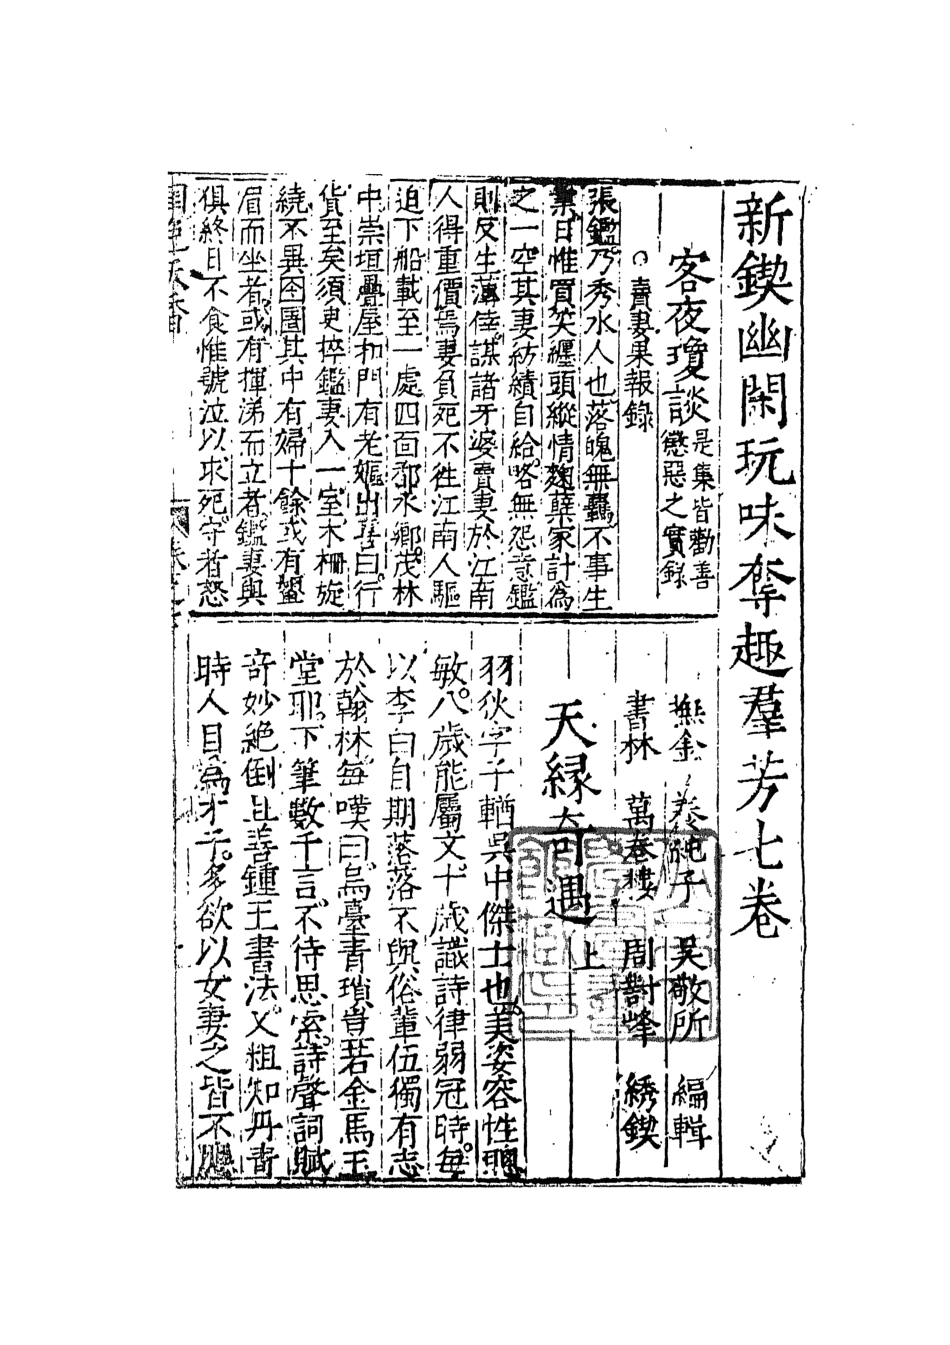 新鍥幽閑玩味奪趣羣芳七卷
客夜瓊談
是集皆勸善
懲惡之實錄
○賣妻果報錄
張鑑乃秀水人也落魄無羈不事生
業日惟買笑纏頭縱情麯蘗家計為
之一空其妻紡績自給略無怨意鑑
則反生薄倖謀諸牙婆賣妻於江南
人得重價焉妻負死不徃江南人驅
迫下船載至一處四面水鄉茂林
中崇垣疊屋扣門有老嫗出喜曰行
貨至矣須臾捽鑑妻入一室木柵旋
繞不異囹圄其中有婦十餘或有顰
眉而坐者或有揮涕而立者鑑妻與
俱終日不食惟號泣以求死守者怒
撫金 養純子 吳敬所 編輯
書林 萬卷樓 周對峰 綉鍥
天緣奇遇 上
羽狄字子輶吳中傑士也美姿容性聰
敏八歲能屬文十歲識詩律弱冠時每
以李白自期落落不與俗輩伍獨有志
於翰林每嘆曰烏臺青瑣豈若金馬玉
堂耶下筆數千言不待思索詩聲詞賦
奇妙絕倒且善鍾王書法又粗知丹青
時人目為才子多欲以女妻之皆不應